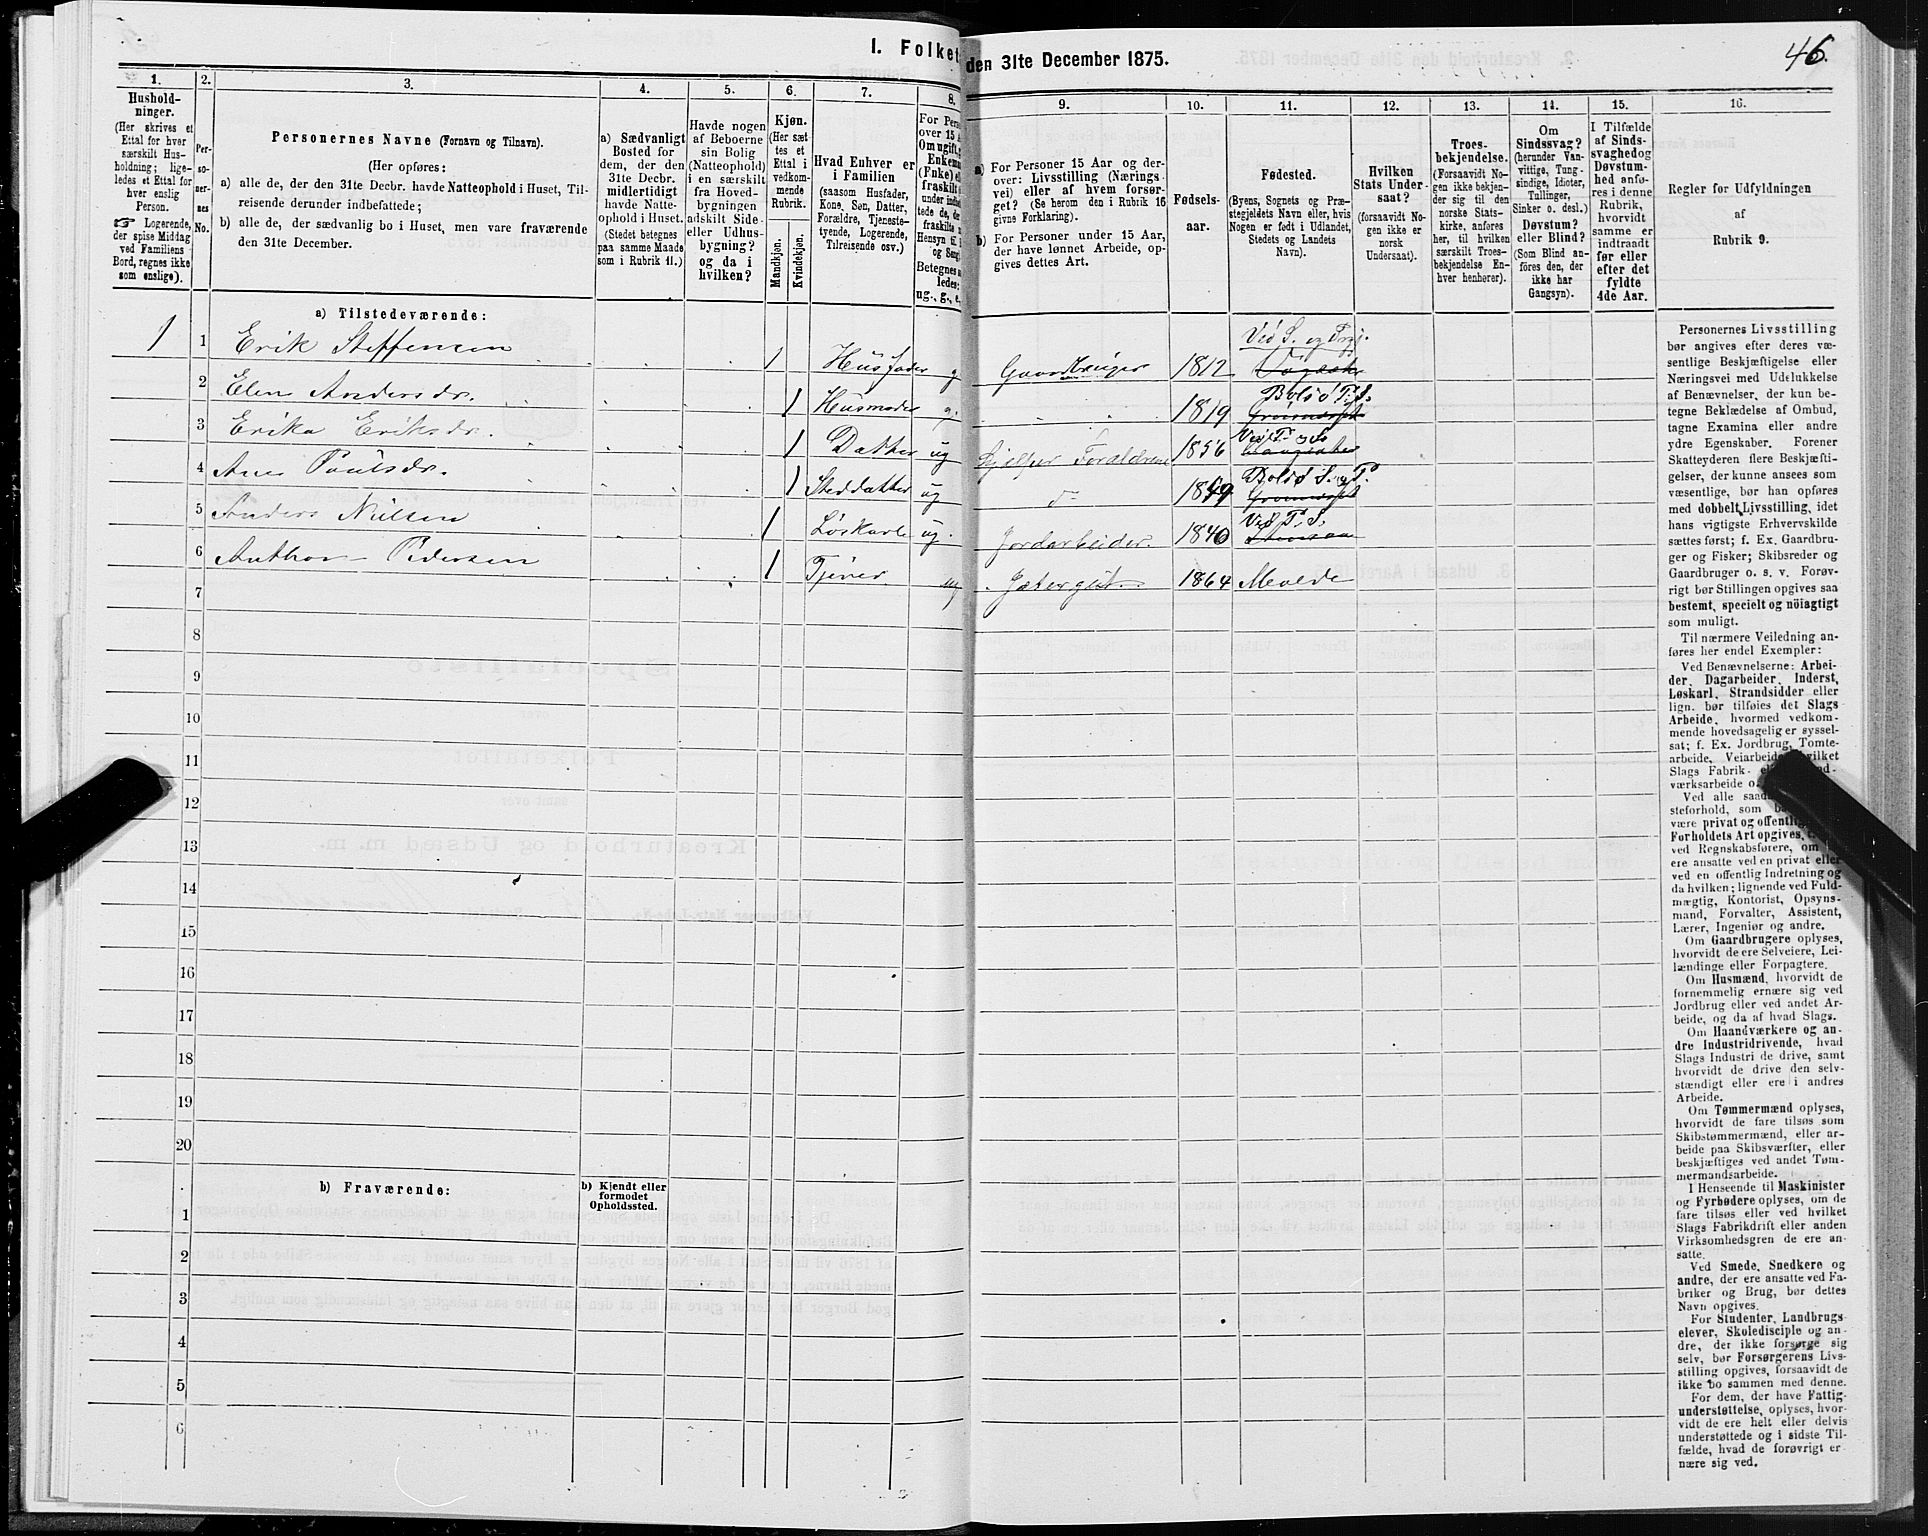 I. Folket
den 31te December 1875.
46.
1. 2. 3. 4. 5. 6. 7. 8. 9. 10. 11. 12. 13. 14. 15. 16.
Hushold-
ninger.
(Her skrives et
Ettal for hver
særskilt Hus-
holdning; lige-
ledes et Ettal for
hver enslig
Person.
☞ Logerende,
der spise Middag
ved Familiens
Bord, regnes ikke
som enslige).
Per-
so-
ner-
nes
No.
Personernes Navne (Fornavn og Tilnavn).
(Her opføres:
a) alle de, der den 31te Decbr. havde Natteophold i Huset, Til-
reisende derunder indbefattede;
b) alle de, der sædvanlig bo i Huset, men vare fraværende
den 31te December.
a) Sædvanligt
Bosted for
dem, der den
31te Decbr.
midlertidigt
havde Natte-
ophold i Huset.
(Stedet betegnes
paa samme Maade
som i Rubrik 11.)
Havde nogen
af Beboerne
sin Bolig
(Natteophold)
i en særskilt
fra Hoved-
bygningen
adskilt Side-
eller Udhus-
bygning?
og da i
hvilken?
Kjøn.
(Her sæt
tes et
Ettal i
vedkom-
mende
Rubrik.
Mandkjøn.
Kvindekjøn.
Hvad Enhver er
i Familien
(saasom Husfader,
Kone, Søn, Datter,
Forældre, Tjeneste-
tyende, Logerende,
Tilreisende osv.)
For Pers
over 15 A
Om ugift,
Enkema
(Fnke) el
fraskilt
under indbe
tede de, de
fraskilte
Hensyn ti
og Seng
Betegnes
ledes:
ug., g., e.
a) For Personer 15 Aar og der-
over: Livsstilling (Nærings-
vei) eller af hvem forsør-
get? (Se herom den i Rubrik 16
givne Forklaring).
b) For Personer under 15 Aar,
der have lønnet Arbeide, op-
gives dettes Art.
Fødsels-
aar.
Fødested.
(Byens, Sognets og Præ-
stegjeldets Navn eller, hvis
Nogen er født i Udlandet,
Stedets og Landets
Navn).
Hvilken
Stats Under-
saat?
(forsaavidt No-
gen ikke er
norsk
Undersaat).
Troes-
bekjendelse.
(Forsaavidt No-
gen ikke bekjen-
der sig til den
norske Stats-
kirke, anføres
her, til hvilken
særskilt Troes-
bekjendelse En-
hver henhører).
Om
Sindssvag?
(herunder Van-
vittige, Tung-
sindige, Idioter,
Tullinger,
Sinker o. desl.)
Døvstum?
eller Blind?
(Som Blind an-
føres den, der
ikke har
Gangsyn).
I Tilfælde
af Sinds-
svaghed og
Døvstum-
hed anfø-
res i denne
Rubrik,
hvorvidt
samme er
indtraadt
før eller
efter det
fyldte
4de Aar.
Regler for Udfyldningen
af
Rubrik 9.
a) Tilstedeværende:
1 1 Erik Steffensen 1 Husfader g Gaardbruger 1812 Veø S. og Prgj.
2 Elen Andersdr. 1 Husmoder g. 1819 Bolsø P. S.
3 Erika Eriksdr. 1 Datter ug Hjelper Forældrene 1856 Veø P. S.
4 Ane Poulsdr. 1 Steddatter ug d 1849 Bolsø S. og P.
5 Anders Nielsen 1 Løskarl ug. Jordarbeider. 1840 Veø P. S.
6 Anthon Pedersen 1 Tjener ug Jætergut 1864 Molde
7
8
9
10
11
12
13
14
15
16
17
18
19
20
b) Fraværende:
b) Kjendt eller
formodet
Opholdssted.
1
2
3
4
5
6
Personernes Livsstilling
bør angives efter deres væ-
sentlige Beskjæftigelse eller
Næringsvei med Udelukkelse
af Benævnelser, der kun be-
tegne Beklædelse af Ombud,
tagne Examina eller andre
ydre Egenskaber. Forener
Skatteyderen flere Beskjæfti-
gelser, der kunne ansees som
væsentlige, bør han opføres
med dobbelt Livsstilling, idet
hans vigtigste Erhvervskilde
sættes først; f. Ex. Gaardbru-
ger og Fisker; Skibsreder og
Gaardbruger o. s. v. Forøv-
rigt bør Stillingen opgives saa
bestemt, specielt og nöiagtigt
som muligt.
Til nærmere Veiledning an-
føres her endel Exempler:
Ved Benævnelserne: Arbei-
der, Dagarbeider, Inderst,
Løskarl, Strandsidder eller
lign. bør tilføies det Slags
Arbeide, hvormed vedkom-
mende hovedsagelig er syssel-
sat; f. Ex. Jordbrug, Tomte-
arbeide, Veiarbeide, hvilket
Slags Fabrik-
værksarbeide o.
Ved alle saad
steforhold, som
være privat og offentlig
Forholdets Art opgives,
ved Regnskabsførere, om
ere ansatte ved en privat eller
ved en offentlig Indretning og
da hvilken; lignende ved Fuld-
mægtig, Kontorist, Opsyns-
mand, Forvalter, Assistent,
Lærer, Ingeniør og andre.
Om Gaardbrugere oplyses,
hvorvidt de ere Selveiere, Lei-
lændinge eller Forpagtere.
Om Husmænd, hvorvidt de
fornemmelig ernære sig ved
Jordbrug eller ved andet Ar-
beide, og da af hvad Slags.
Om Haandværkere og an-
dre Industridrivende, hvad
Slags Industri de drive, samt
hvorvidt de drive den selv-
stændigt eller ere i andres
Arbeide.
Om Tømmermænd oplyses,
hvorvidt de fare tilsøs som
Skibstømmermænd, eller ar-
beide paa Skibsværfter, eller
beskjæftiges ved andet Tøm-
mermandsarbeide.
I Henseende til Maskinister
og Fyrbødere oplyses, om de
fare tilsøs eller ved hvilket
Slags Fabrikdrift eller anden
Virksomhedsgren de ere an-
satte.
Ved Smede, Snedkere og
andre, der ere ansatte ved Fa-
briker og Brug, bør dettes
Navn opgives.
For Studenter, Landbrugs
elever, Skoledisciple og an-
dre, der ikke forsørge sig
selv, bør Forsørgerens Livs-
stilling opgives, forsaavidt de
ikke bo sammen med denne.
For dem, der have Fattig-
understøttelse, oplyses, hvor-
vidt de ere helt eller delvis
understøttede og i sidste Til-
fælde, hvad de forøvrigt er-
nære sig ved.